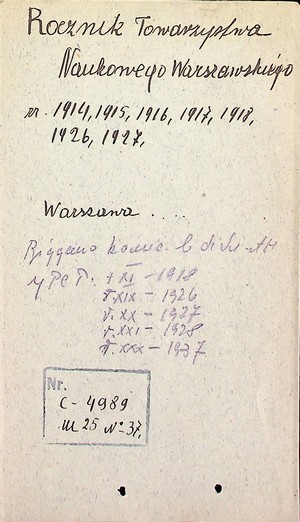 Rocznik Towarzystwa
Naukowego Warszawskiego
1914, 1915, 1916, 1917, 1918,
1926, 1927,
Warszawa ....
XI - 1918
XIX - 1926
XX - 1927
XXI - 1928
XXX - 1937
Nr.
C - 4989
25 No 37,